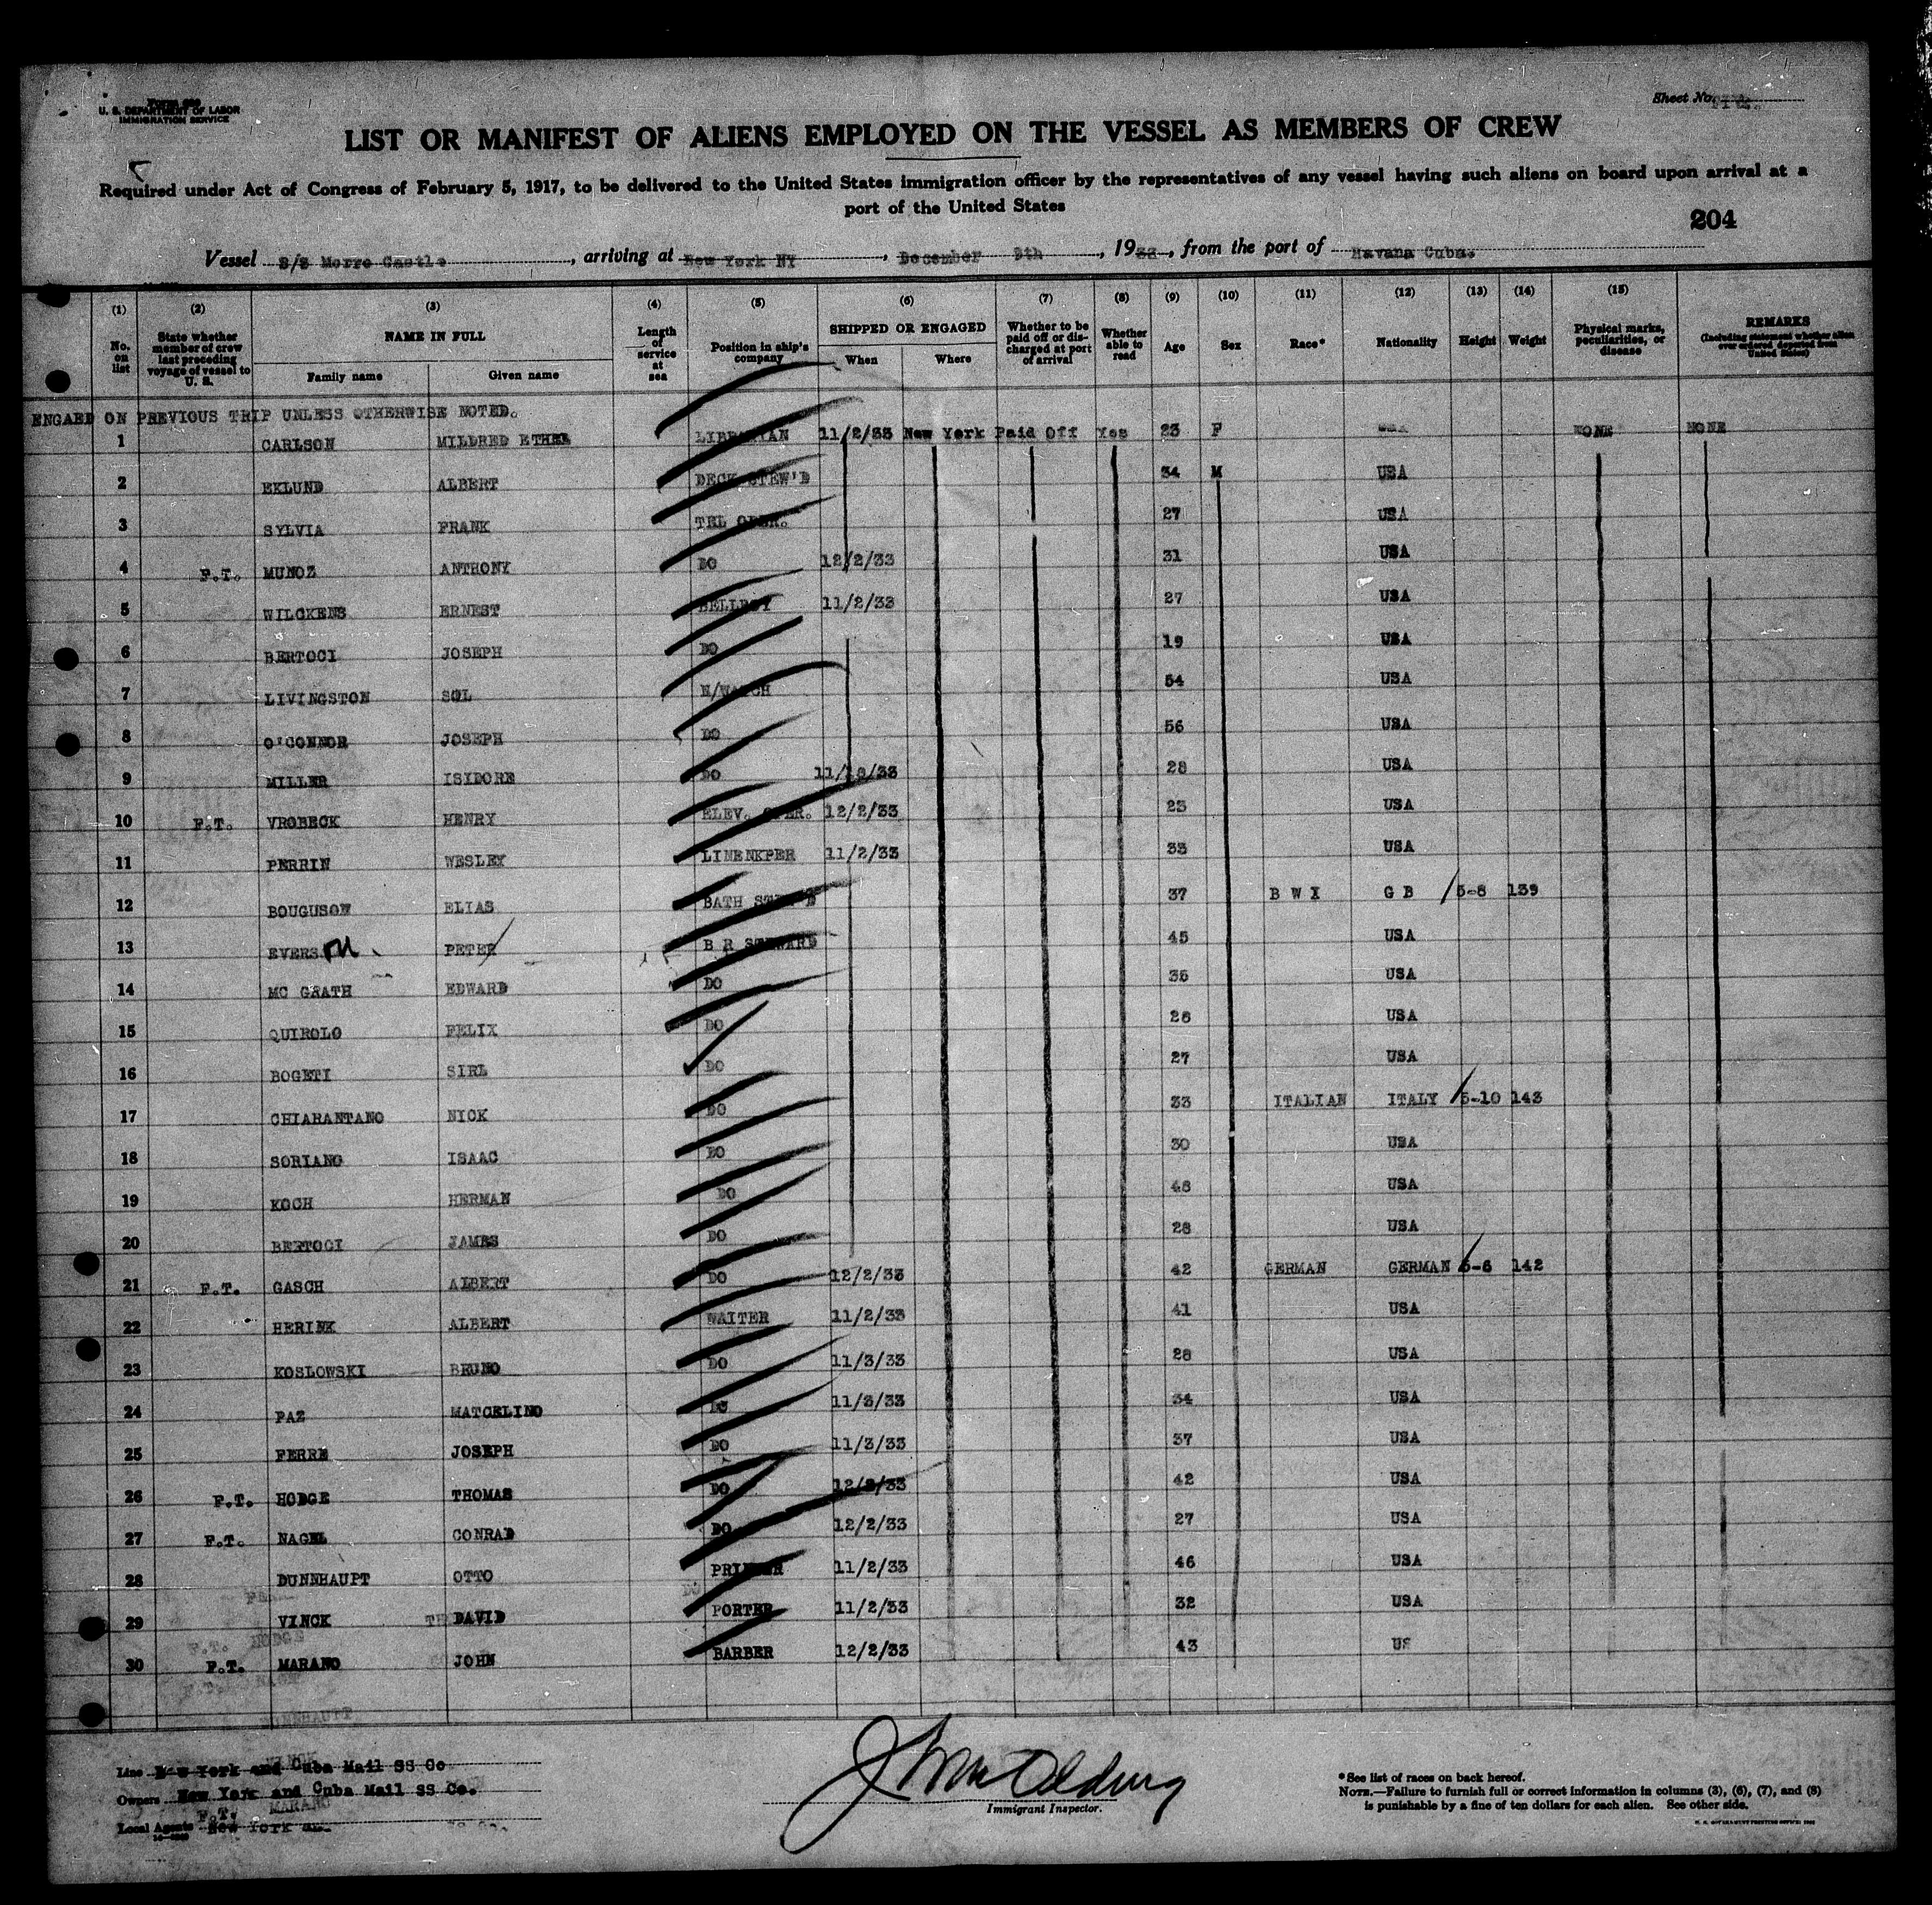 Form 680
U. S. DEPARTMENT OF LABOR
IMMIGRATION SERVICE
Sheet No.
LIST OR MANIFEST OF ALIENS EMPLOYED ON THE VESSEL AS MEMBERS OF CREW
Required under Act of Congress of February 5, 1917, to be delivered to the United States immigration officer by the representatives of any vessel having such aliens on board upon arrival at a
port of the United States
204
Vessel S/S Morro Castle, arriving at New York NY, December 9th, 1933, from the port of Havana Cuba.
(1) (2) (3) (4) (5) (6) (7) (8) (9) (10) (11) (12) (13) (14) (15)
No. on list State whether member of crew last preceding voyage of vessel to U. S. NAME IN FULL Family name Given name Length of service at sea Position in ship's company SHIPPED OR ENGAGED When Where Whether to be paid off or discharged at port of arrival Whether able to read Age Sex Race* Nationality Height Weight Physical marks, peculiarities, or disease REMARKS (Including statement whether alien ever ordered deported from United States)
ENGAED ON PREVIOUS TRIP UNLESS OTHERWISE NOTED.
1 CARLSON MILDRED ETHEL LIBRARIAN 11/2/33 New York Paid Off Yes 23 F USA NONE NONE
2 EKLUND ALBERT DECK STEW'D 34 M USA
3 SYLVIA FRANK TEL OPER. 27 USA
4 F.T. MUNOZ ANTHONY DO 12/2/33 31 USA
5 WILCKENS ERNEST BELLBOY 11/2/33 27 USA
6 BERTOCI JOSEPH DO 19 USA
7 LIVINGSTON SOL N/WATCH 54 USA
8 O'CONNOR JOSEPH DO 56 USA
9 MILLER ISIDORE DO 28 USA
10 F.T. VROBECK HENRY ELEV. OPER. 12/2/33 23 USA
11 PERRIN WESLEY LINENKPER 11/2/33 33 USA
12 BOUGUSON ELIAS BATH STEW'D 37 B W I G B 5-8 139
13 EVERS PETER B R STEWARD 45 USA
14 MC GRATH EDWARD DO 35 USA
15 QUIROLO FELIX DO 26 USA
16 BOGETI SIRL DO 27 USA
17 CHIARANTANO NICK DO 33 ITALIAN ITALY 5-10 143
18 SORIANO ISAAC DO 30 USA
19 KOCH HERMAN DO 48 USA
20 BERTOCI JAMES DO 28 USA
21 F.T. GASCH ALBERT DO 12/2/33 42 GERMAN GERMAN 5-6 142
22 HERINK ALBERT WAITER 11/2/33 41 USA
23 KOSLOWSKI BRUNO DO 11/3/33 28 USA
24 PAZ MATCELINO DO 11/3/33 34 USA
25 FERRE JOSEPH DO 11/3/33 37 USA
26 F.T. HODGE THOMAS DO 12/2/33 42 USA
27 F.T. NAGEL CONRAD DO 12/2/33 27 USA
28 DUNNHAUPT OTTO PRINTER 11/2/33 46 USA
29 VINCK DAVID PORTER 11/2/33 32 USA
30 F.T. MARANO JOHN BARBER 12/2/33 43 US
Line New York and Cuba Mail SS Co
Owners New York and Cuba Mail SS Co.
Local Agents New York
Immigrant Inspector.
*See list of races on back hereof.
NOTE.—Failure to furnish full or correct information in columns (3), (6), (7), and (8)
is punishable by a fine of ten dollars for each alien. See other side.